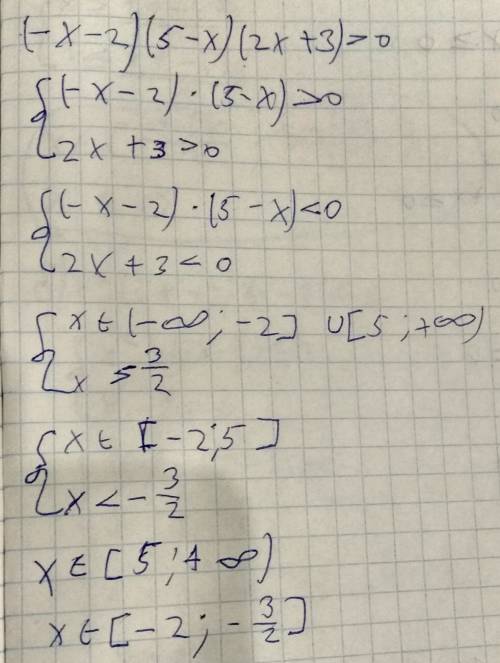 (-x-2)(5-x)(2x+3)>0
{(-x-2)·(5-x)>0
2x+3>0
{(-x-2)·(5-x)<0
2x+3<0
{x∈(-∞;-2] ∪[5;+∞)
x > 3/2
{x∈[-2;5]
x<-3/2
x∈[5;+∞)
x∈[-2;-3/2]